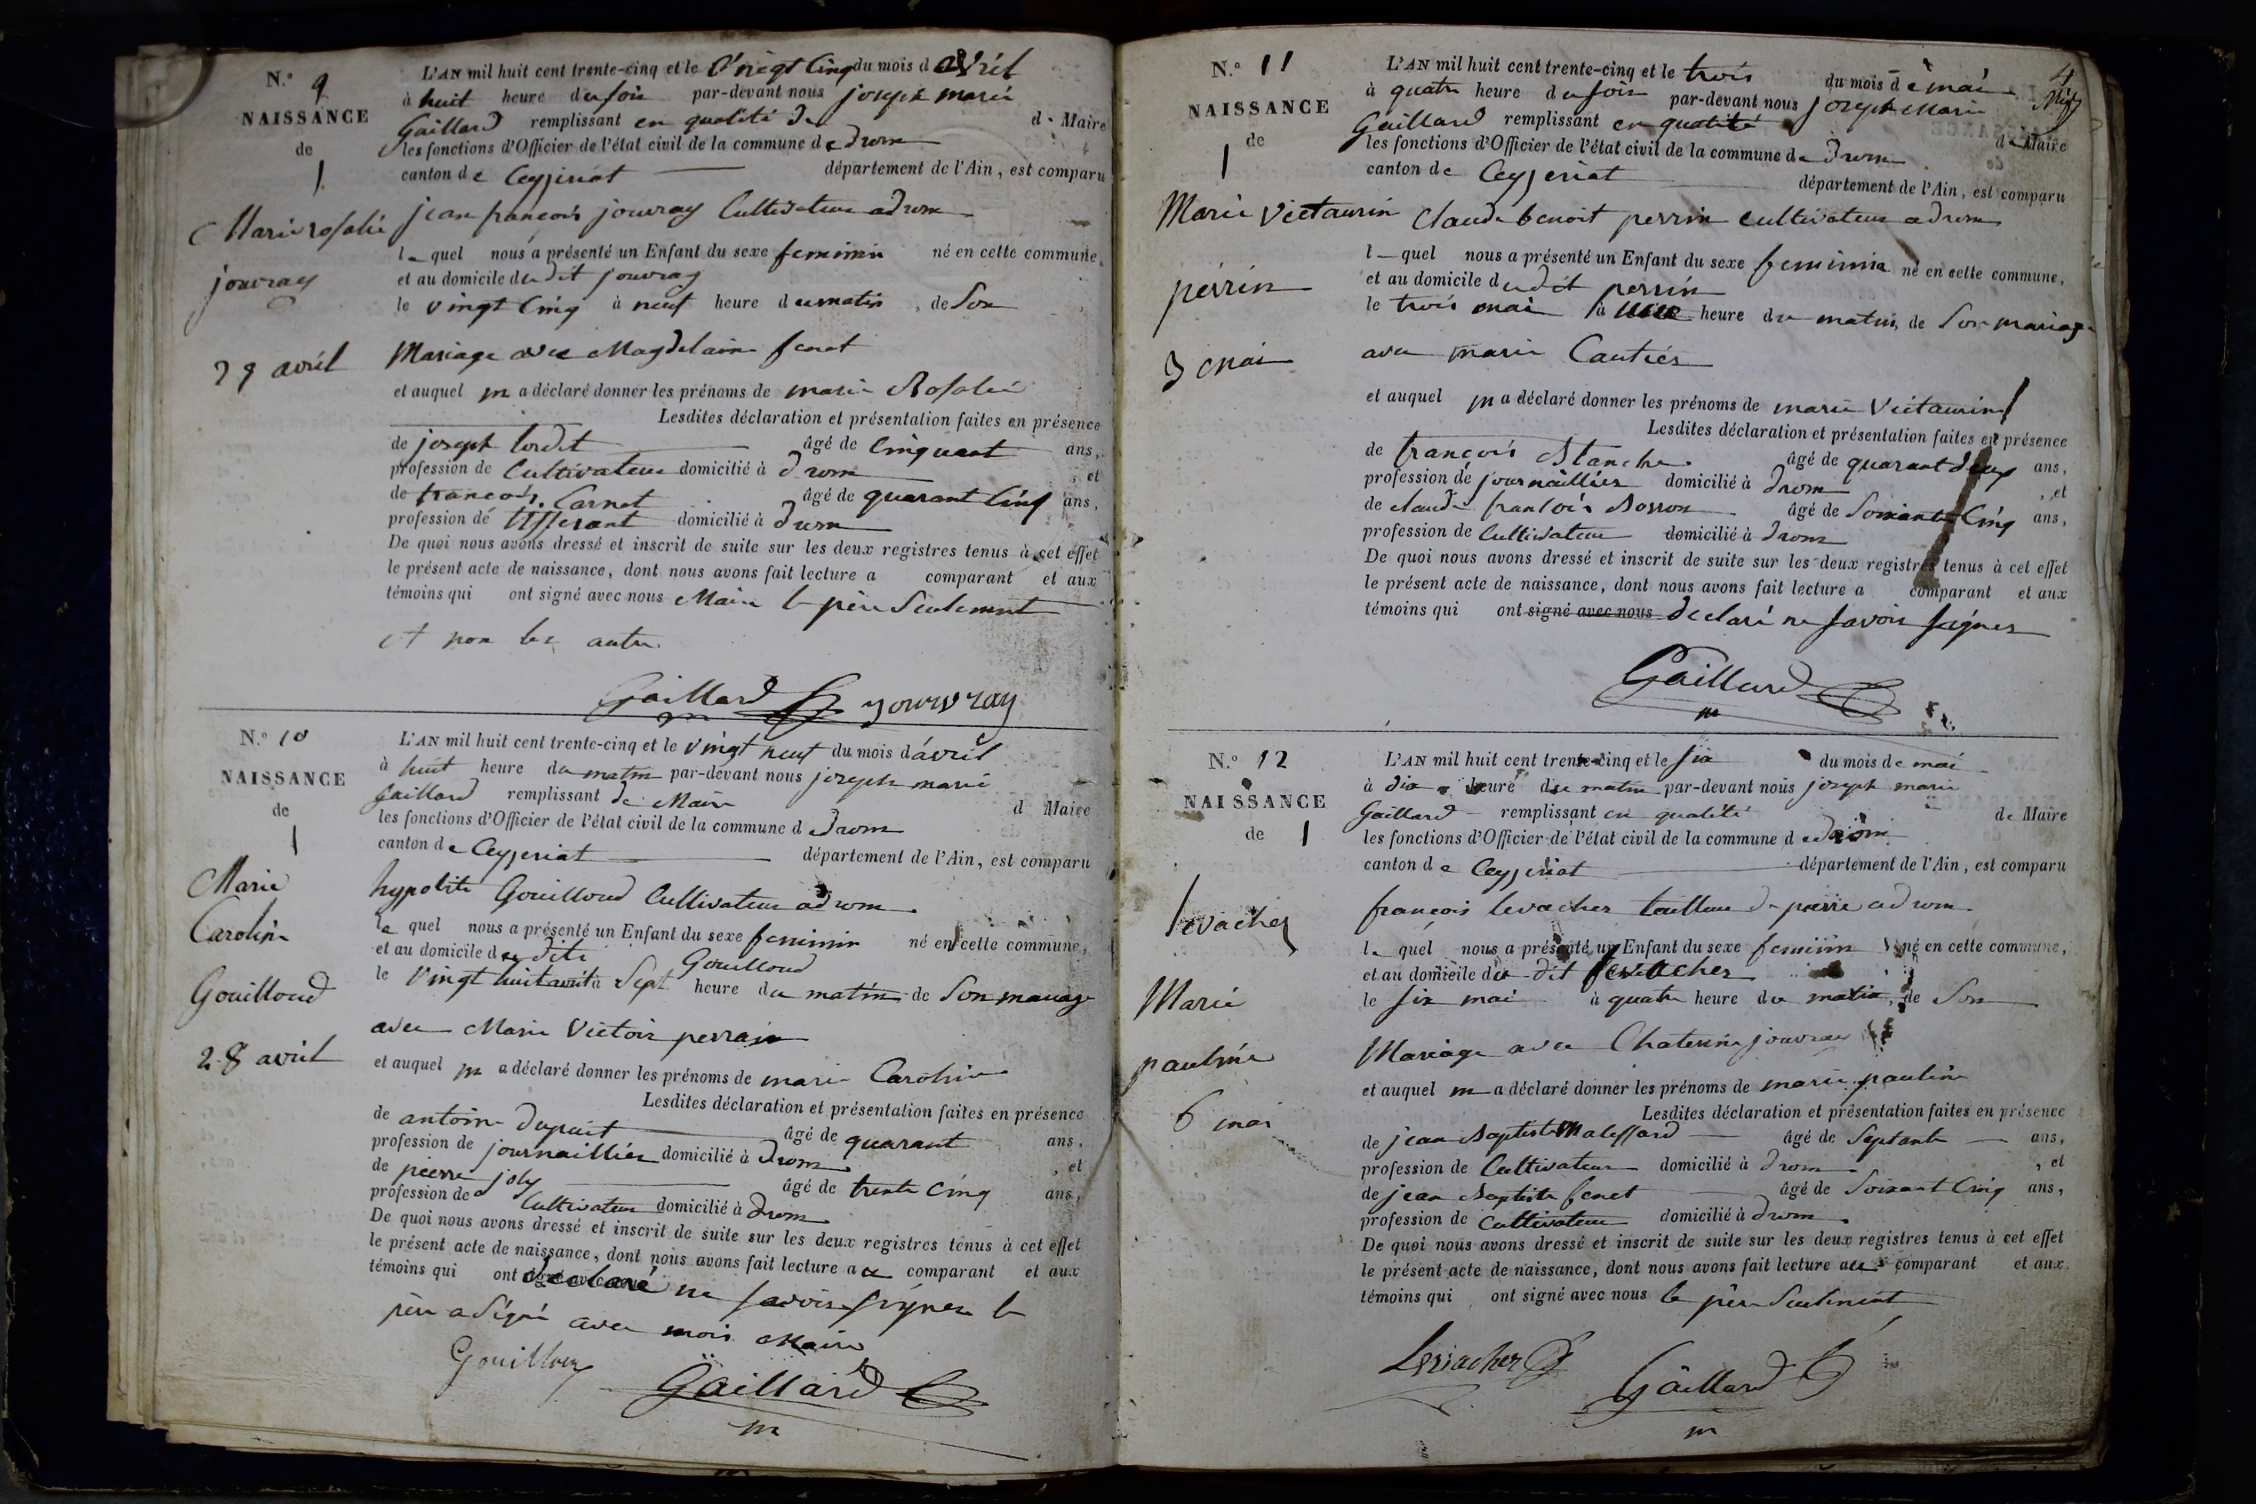 N.° 9
NAISSANCE
de
1
Marie rosalie
jouvray
29 avril
L'AN mil huit cent trente-cinq et le vingt cinq du mois d avril
à huit heure du soir par-devant nous joseph marie
Gaillard remplissant en qualité de d Maire
les fonctions d'Officier de l'état civil de la commune de drom
canton de Ceyzeriat département de l'Ain, est comparu
jean françois jouvray Cultivateur a drom
le quel nous a présenté un Enfant du sexe feminin né en cette commune,
et au domicile du dit jouvray
le vingt Cinq à neuf heure du matin, de Son
Mariage avec Magdelaine fenet
et auquel m a déclaré donner les prénoms de marie Rosalie
Lesdites déclaration et présentation faites en présence
de joseph tordit âgé de Cinquant ans,
profession de Cultivateur domicilié à drom, et
de françois Carnet âgé de quarant Cinq ans,
profession de tisserant domicilié à drom
De quoi nous avons dressé et inscrit de suite sur les deux registres tenus à cet effet
le présent acte de naissance, dont nous avons fait lecture a comparant et aux
témoins qui ont signé avec nous Maire le père Seulement
et non les autre
Gaillard jouvray
m
N.° 10
NAISSANCE
de
1
Marie
Carolin
Gouilloud
28 avril
L'AN mil huit cent trente-cinq et le vingt neuf du mois d'avril
à huit heure du matin par-devant nous joseph marie
Gaillard remplissant de Maire d Maire
les fonctions d'Officier de l'état civil de la commune d drom
canton de Ceyzeriat département de l'Ain, est comparu
hypolite Gouilloud Cultivateur a drom
le quel nous a présenté un Enfant du sexe feminin né en cette commune,
et au domicile du dit Gouilloud
le vingt huit avril à Sept heure du matin de Son mariage
avec Marie Victoir perrain
et auquel m a déclaré donner les prénoms de marie Carolin
Lesdites déclaration et présentation faites en présence
de antoine dupuit âgé de quarant ans,
profession de journaillier domicilié à drom, et
de pierre joly âgé de trente cinq ans,
profession de Cultivateur domicilié à drom
De quoi nous avons dressé et inscrit de suite sur les deux registres tenus à cet effet
le présent acte de naissance, dont nous avons fait lecture a u comparant et aux
témoins qui ont declaré ne savoir signer le
père a Signé avec mois Maire
Gouilloud Gaillard
m
4
N.° 11
NAISSANCE
de
1
Marie Victaurin
perrin
3 mai
L'AN mil huit cent trente-cinq et le trois du mois de mai
à quatre heure du soir par-devant nous joseph Marie
Gaillard remplissant en qualité de Maire
les fonctions d'Officier de l'état civil de la commune de drom
canton de Ceyzeriat département de l'Ain, est comparu
Claude benoit perrin cultivateur a drom
l quel nous a présenté un Enfant du sexe feminin né en cette commune,
et au domicile du dit perrin
le trois mai à une heure du matin, de Son mariage
avec marie Cautiés
et auquel m a déclaré donner les prénoms de marie Victaurin
Lesdites déclaration et présentation faites en présence
de françois Blanche âgé de quarant deux ans,
profession de journaillier domicilié à drom, et
de claude françois Bosson âgé de Soixante Cinq ans,
profession de Cultivateur domicilié à drom
De quoi nous avons dressé et inscrit de suite sur les deux registres tenus à cet effet
le présent acte de naissance, dont nous avons fait lecture a comparant et aux
témoins qui ont signé avec nous declaré ne savoir signer
Gaillard
m
N.° 12
NAISSANCE
de 1
levacher
Marie
paulnie
6 mai
L'AN mil huit cent trente-cinq et le six du mois de mai
à dix heure du matin par-devant nous joseph marie
Gaillard remplissant en qualité de Maire
les fonctions d'Officier de l'état civil de la commune de drom
canton de Ceyzeriat département de l'Ain, est comparu
françois levacher tailleur de pierre a drom
le quel nous a présenté un Enfant du sexe feminin né en cette commune,
et au domicile du dit levacher
le six mai à quatre heure du matin, de Son
Mariage avec Chaterine jouvray
et auquel m a déclaré donner les prénoms de marie paulin
Lesdites déclaration et présentation faites en présence
de jean Baptiste Maleffard âgé de Septante ans,
profession de Cultivateur domicilié à drom, et
de jean Baptiste fenet âgé de Soixant Cinq ans,
profession de Cultivateur domicilié à drom
De quoi nous avons dressé et inscrit de suite sur les deux registres tenus à cet effet
le présent acte de naissance, dont nous avons fait lecture au comparant et aux
témoins qui ont signé avec nous le père Seulement
Levacher Gaillard
m